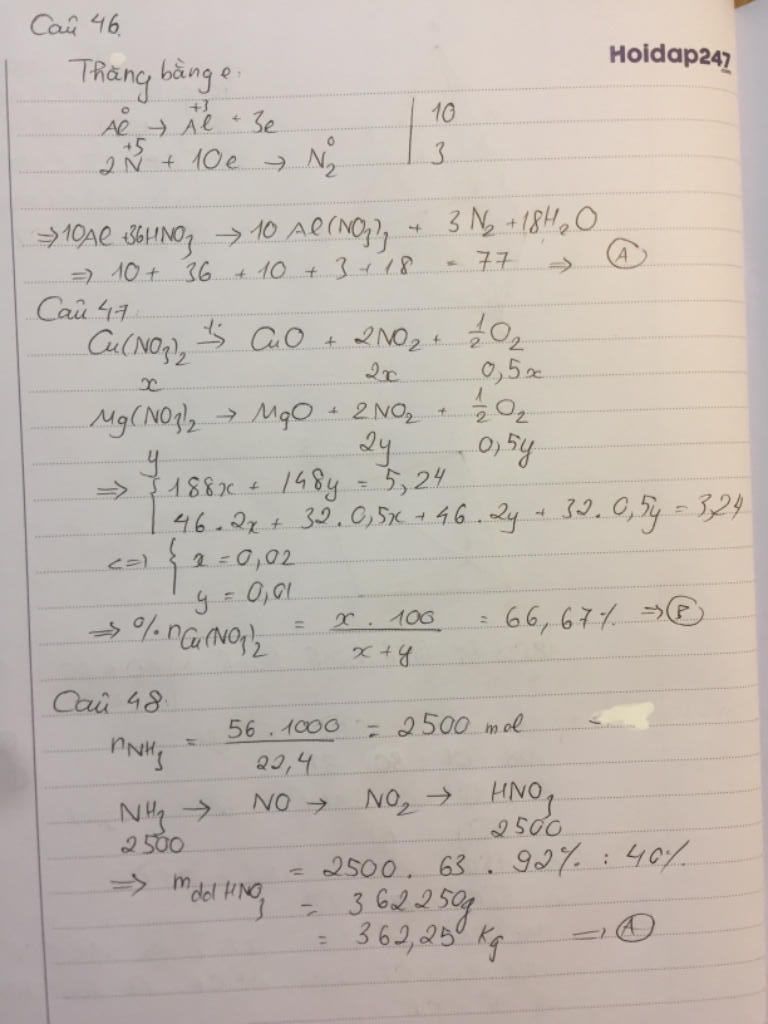 Câu 46.
Hoidap247
Thăng bằng e:
Al⁰ → Al⁺³ + 3e | 10
2N⁺⁵ + 10e → N₂⁰ | 3
⇒ 10Al + 36HNO₃ → 10 Al(NO₃)₃ + 3N₂ + 18H₂O
⇒ 10 + 36 + 10 + 3 + 18 = 77 ⇒ A
Câu 47
Cu(NO₃)₂ →(t°) CuO + 2NO₂ + 1/2 O₂
x 2x 0,5x
Mg(NO₃)₂ → MgO + 2NO₂ + 1/2 O₂
y 2y 0,5y
⇒ { 188x + 148y = 5,24
46.2x + 32.0,5x + 46.2y + 32.0,5y = 3,24
<=> { x = 0,02
y = 0,01
⇒ % n Cu(NO₃)₂ = x . 100 / x + y = 66,67% ⇒ B
Câu 48.
nNH₃ = 56.1000 / 22,4 = 2500 mol
NH₃ → NO → NO₂ → HNO₃
2500 2500
⇒ mddHNO₃ = 2500. 63 . 92% : 40%
= 362250g
= 362,25 Kg ⇒ A